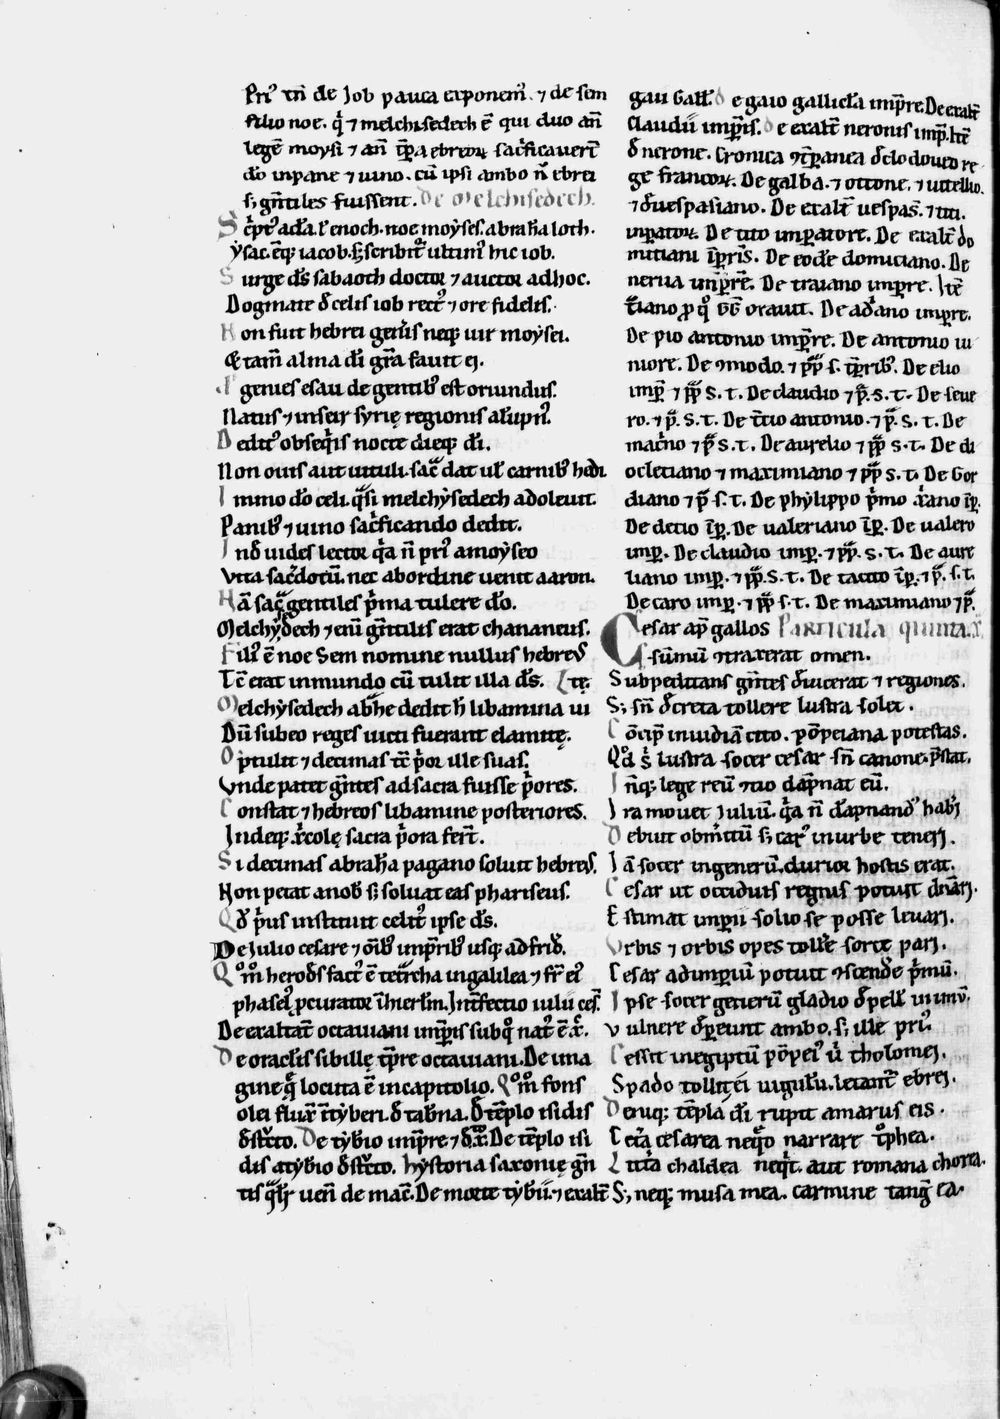 Pri᷒ tn̄ de Job pauca exponem᷒. ⁊ de sem
filio noe. q̇ ⁊ melchisedech ē qui duo an̄
legē moysi ⁊ an̄ ꝑ̄a ebreoꝝ sac̓ficauert̄
do̅ inpane ⁊ uino. cū ipsi ambo n̄ ebrei
sꝫ gn̄tiles fuissent. De Melchisedech.
Sc̓pt᷒ adā. l᷒ enoch. noe moyses. abrah̄a loth.
ysac. eq̄ꝫ iacob. describit᷒ ultim᷒ hic iob.
Surge ds̄ sabaoth doctor ⁊ auctor adhoc.
Dogmate d̄ celis iob rect᷒ ⁊ ore fidelis.
Non fuit hebrei gen̓is neqꝫ uir moysei.
Et tam̄ alma di̅ gr̄a fauit ei.
genies esau de gentib᷒ est oriundus.
Natus ⁊ inseir syrię regionis alūpn᷒.
Dedit᷒ obseq̇is nocte dieqꝫ di̅.
Non ouis aut uituli sac̄ dat ul̓ carnib᷒ hedi
Immo do̅ celi. q̄si melchysedech adoleuit.
Panib᷒ ⁊ uino sac̓ficando dedit.
Inō uides lector q̇a n̄ pri᷒ amoyseo
Vita sac̓dotū. nec abordine uenit aaron.
Hā sac̄ gentiles p̓ma tulere do̅.
Melchysedech ⁊ eni̅ gn̄tilis erat chananeus.
Fili᷒ ē noe Sem nomine nullus hebre᷒
Tc̄ erat inmundo cū tulit illa ds̄. Itē.
Melchysedech abh̄e dedit h̄ libamina ui
Dū subeo reges uicti fuerant elamitę.
Optulit ⁊ decimas tc̄ p̓or ille suas.
Vnde patet gn̄tes ad sacra fuisse p̓ores.
Constat ⁊ hebreos libamine posteriores.
Indeqꝫ x̓colę sacra p̓ora fert̄.
Si decimas abrah̄a pagano soluit hebre᷒.
Non petat anob̄ sꝫ soluat eas phariseus.
Qd̄ p̓us instituit celit᷒ ipse ds̄.
De Julio cesare ⁊ oīb᷒ imp̄rib᷒ usqꝫ ad frid̄.
Qm̊ herodes fact᷒ ē tet̓rcha in galilea ⁊ fr̄ ei᷒
phasel᷒ ꝓcurator ī hierl̄m. Int̓fectio iulii ces̄.
De exaltat̄ octauiani imp̄ris sub q̊ nat᷒ ē x̄.
De oraclis sibillę tp̄re octauiani. De ima
gine q̄ locuta ē incapitolio. Qm̊ fons
olei flux̄ ī tyberi. d̄ tab̓na. d̄ tēplo isidis
dist̓cto. De tyb̓io imp̄re ⁊ d̄ x̄. De tēplo isi
dis atyb̓io dist̓cto. hystoria saxonię gn̄
tis q̄lr̄ uen̓ de mac̄. De morte tyb̓ii. ⁊ exalt̄
gaii Gall᷒. De gaio gallicl̄a imp̄re. De exalt̄
Claudii imp̄ris. De exalt̄ neronis imp̄. Itē
d̄ nerone. Cronica ⁊tp̄anea d̄ clodoueo re
ge francoꝝ. De galba. ⁊ ottone. ⁊ uitellio.
⁊ d̄ uespasiano. De exalt̄ uespas̄. ⁊ titi.
inperatoꝝ. De tito imperatore. De exalt̄ do
mitiani īp̄ris. De eod̄e domiciano. De
nerua imp̄re. De traiano impre. Itē
t̓iano ꝓ q̊ Gḡ orauit. De ad̓ano impre.
De pio antonio imp̄re. De antonio iu
niore. De ⁊modo. ⁊ pp̄ s. tp̄rib᷒. De elio
imp̄ ⁊ pp̄ s. t. De claudio ⁊ p̄. s. t. De seue
ro. ⁊ p̄. s. t. De t̓cio antonio. ⁊ p̄. s. t. De
mac̓no ⁊ p̄ s. t. De aurelio ⁊ pp̄ s. t. De di
ocletiano ⁊ maximiano ⁊ pp̄ s. t. De Gor
diano ⁊ p̄ s. t. De phylippo p̓mo x̓ano īp̄.
De decio īp̄. De ualeriano īp̄. De valero
imp̄. De claudio imp̄. ⁊ pp̄. s. t. De aure
liano imp̄. ⁊ pp̄. s. t. De tacito īp̄. ⁊ p̄. s. t.
De caro imp̄. ⁊ pp̄ s. t. De maximiano ⁊ p̄.
Cesar ap̄ gallos Particula quinta.
sūmū ⁊traxerat omen.
Subpeditans gn̄tes d̄uicerat ⁊ regiones.
Sꝫ sn̄ d̄creta tollere lustra solet.
Cōcip̄ inuidiā cito. pōpeiana potestas.
Qd̊ s̓ lustra socer cesar sn̄ canone. p̄stat.
Inqꝫ lege reū ⁊cio dāpnat eū.
Ira mouet iuliū. q̇a n̄ dāpnand᷒ hab̓i
Debuit obm̓itū sꝫ car᷒ inurbe teneri.
Iā socer ingenerū. durior hostis erat.
Cesar ut occiduis regnis potuit dn̄ari.
Estimat imperii solio se posse leuari.
Vrbis ⁊ orbis opes toll̓e sorte pari.
Cesar adimperiū potuit ⁊scend̓e p̓mū.
Ipse socer generū gladio d̄pell̓ inimū.
vulnere d̄p̓eunt ambo. sꝫ ille pri᷒.
Cessit inegiptū pōpei᷒ u̓ tholomei.
Spado tollit ei uigulū. letant̄ ebrei.
Denuqꝫ tēpla di̅ rupit amarus eis.
Cet̓a cesarea neq̊o narrare t̊phea.
Litt̓a chaldea neq̇t. aut romana chorea.
Sꝫ neqꝫ musa mea. carmine tang̓ ea.